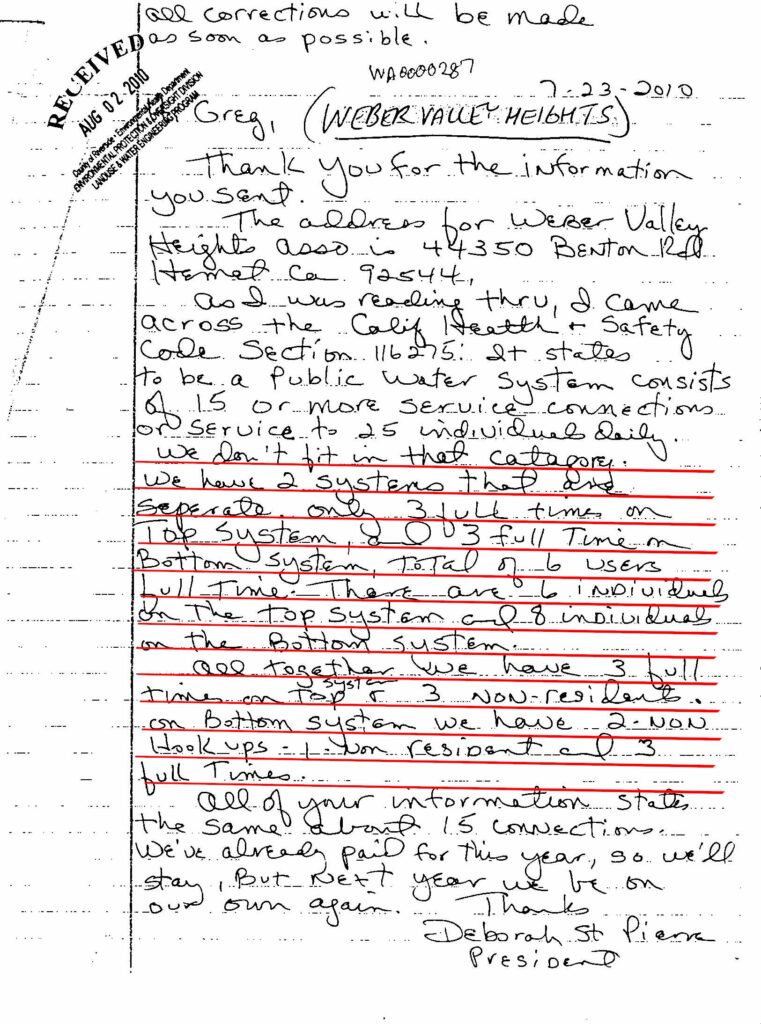 all corrections will be made
as soon as possible.
WA0000287
7-23-2010
RECEIVED
AUG 02 2010
County of Riverside - Environmental Health Department
ENVIRONMENTAL PROTECTION & OVERSIGHT DIVISION
LANDUSE & WATER ENGINEERING PROGRAM
Greg, (WEBER VALLEY HEIGHTS)
Thank you for the information
you sent.
The address for Weber Valley
Heights asso is 44350 Benton Rd
Hemet Ca 92544,
as I was reading thru, I came
across the Calif Health + Safety
Code Section 116275. It states
to be a Public Water System consists
of 15 or more service connections
or service to 25 individuals daily.
We don't fit in that catagory.
We have 2 systems that are
seperate. only 3 full times on
Top System, and 3 full Time on
Bottom System, total of 6 users
full time. There are 6 individuals
on the top system and 8 individuals
on the Bottom system.
All together we have 3 full
times on Top system & 3 Non-residents.
on Bottom system we have 2-Non
Hook ups - 1-Non resident and 3
full Times.
All of your information states
the same about 15 connections.
We've already paid for this year, so we'll
stay, But Next year we be on
our own again. Thanks
Deborah St Pierre
President